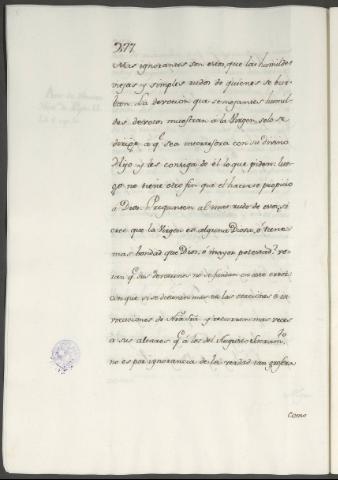 Mas ignorantes son estos, que las humildes
viejas y simples rudos de quienes se bur-
lan. La devocion que semejantes humil-
des devotos muestran a la Virgen, solo se
dirije a q.e sea intercesora con su divino
Hijo y les consiga de él lo que piden: lue-
go no tiene otro fin que el hacerse propicio
a Dios. Pregunten al mas rudo de estos, si
cree que la Virgen es alguna Diosa, ó tiene
mas bondad que Dios, ó mayor potestad?
tan q.e sus devociones no se fundan en este error:
con que si se detienen mas en las oraciones e in-
vocaciones de Nra Sra y recurren mas veces
a sus altares q.e a los del Augusto
no es por ignorancia de la verdad tan
como